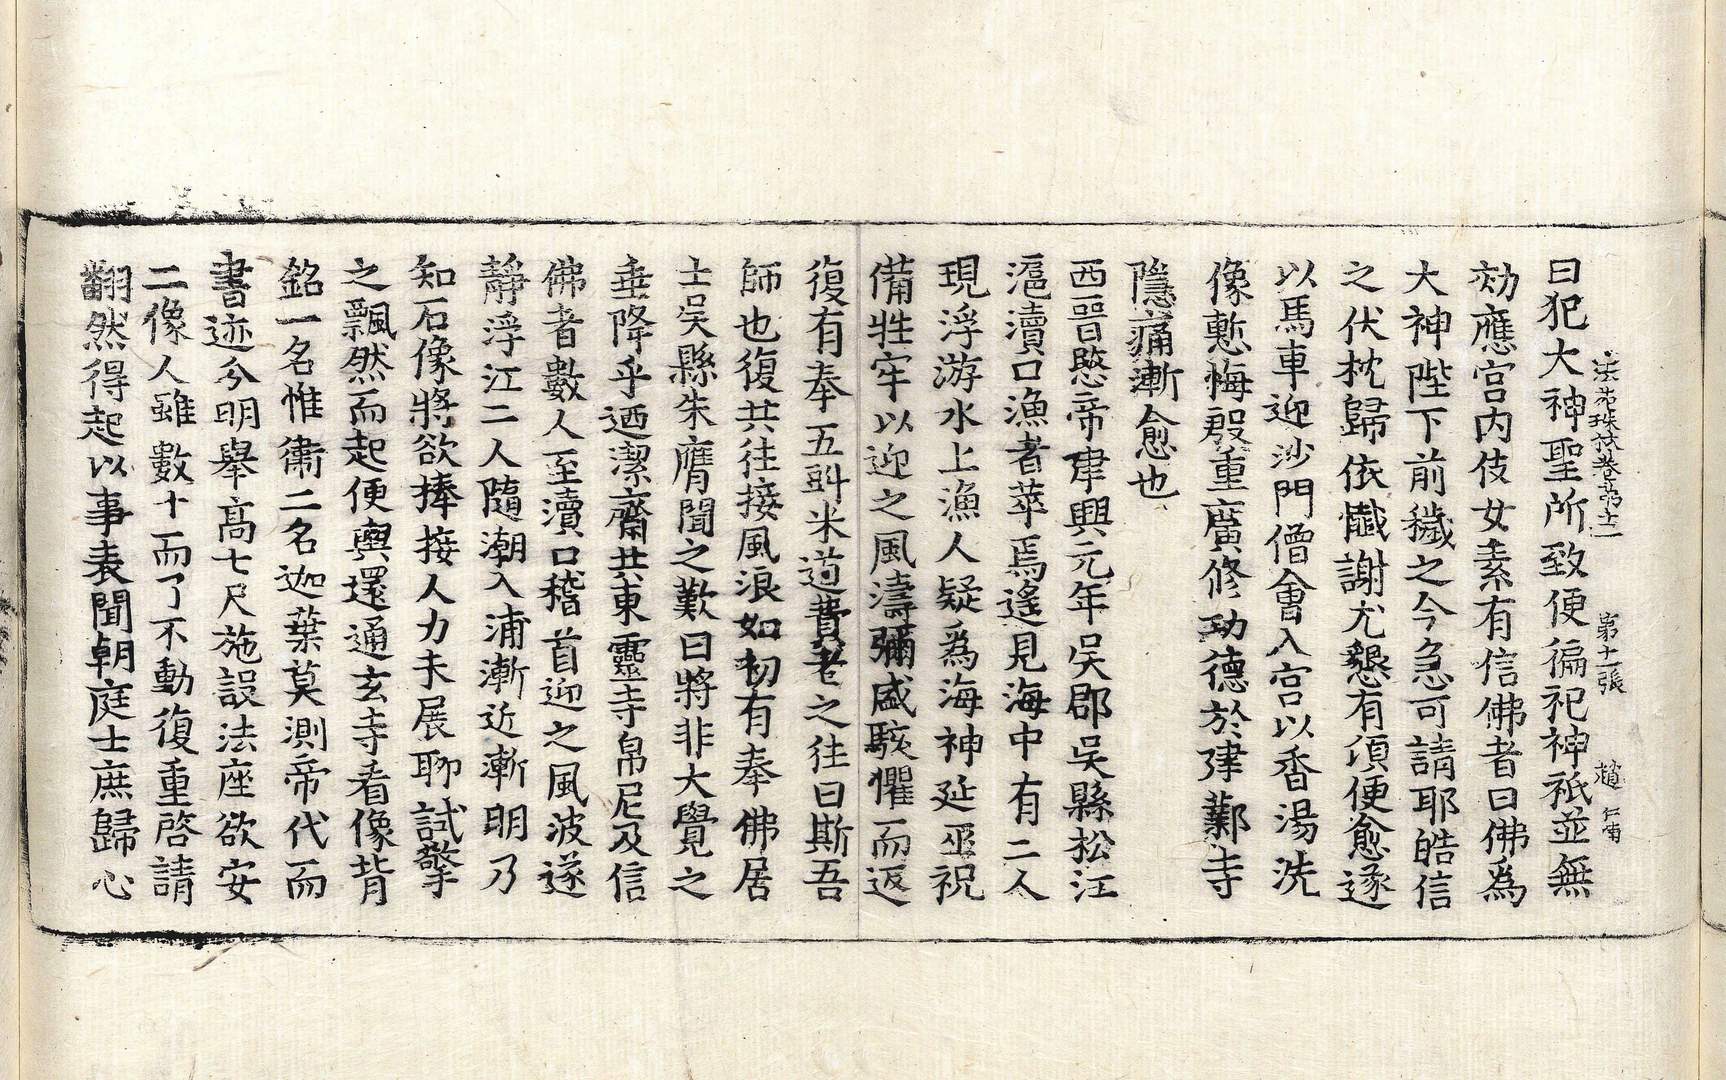 法苑珠林卷第十二 第十一張 趙仁甫
曰犯大神聖所致便徧祀神祇並無
効應宮内伎女素有信佛者曰佛爲
大神陛下前穢之今急可請耶皓信
之伏枕歸依懺謝尤懇有湏便愈遂
以馬車迎沙門僧會入宮以香湯洗
像慙悔殷重廣修功德於建鄴寺
隱痛漸愈也
西晉愍帝建興元年吳郡吳縣松江
滬瀆口漁者萃焉遙見海中有二人
現浮游水上漁人疑爲海神延巫祝
備牲牢以迎之風濤彌盛駭懼而返
復有奉五㪷米道黃老之徒曰斯吾
師也復共往接風浪如初有奉佛居
士吳縣朱膺聞之歎曰將非大覺之
垂降乎迺潔齋共東靈寺帛尼及信
佛者數人至瀆口稽首迎之風波遂
靜浮江二人隨潮入浦漸近漸明乃
知石像將欲捧接人力未展聊試擎
之飄然而起便輿還通玄寺看像背
銘一名惟衞二名迦葉莫測帝代而
書迹分明舉高七尺施設法座欲安
二像人雖數十而了不動復重啓請
翻然得起以事表聞朝庭士庶歸心